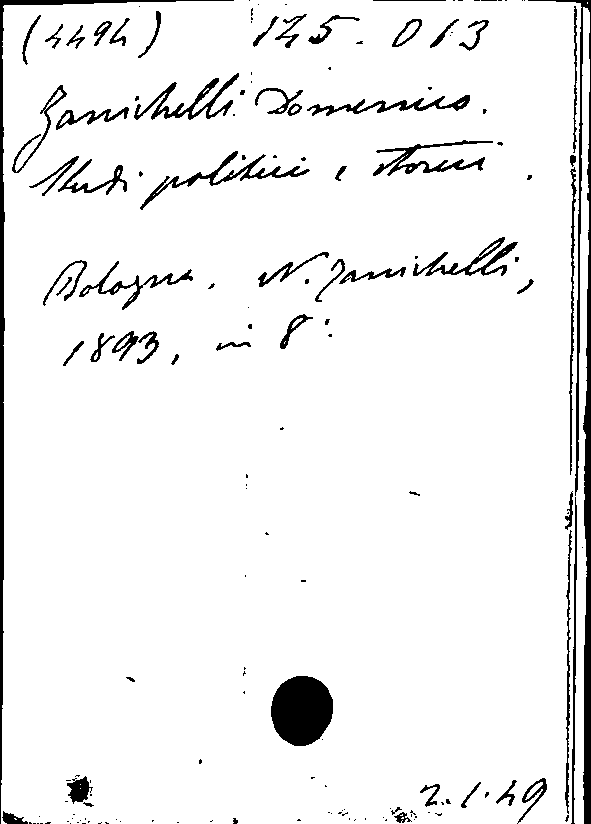 (4494) 125.013
Zanichelli Domenico.
Studi politici e storici.
Bologna. N. Zanichelli,
1893, in 8°.
2.1.49